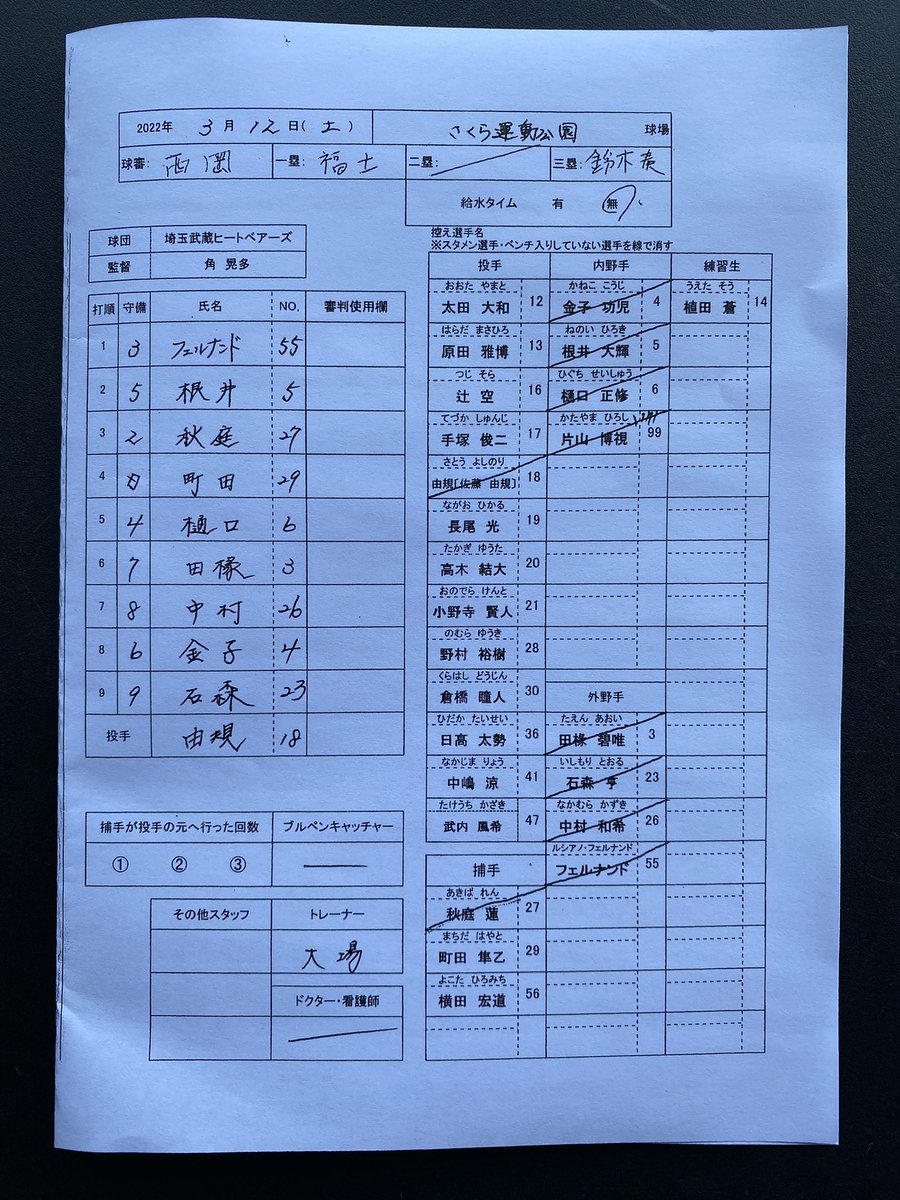 2022年 3月 12日(土) さくら運動公園 球場
球審: 西岡 一塁: 福士 二塁: 三塁: 鈴木奏
給水タイム 有 無
球団 埼玉武蔵ヒートベアーズ
監督 角 晃多
打順 守備 氏名 NO. 審判使用欄
1 3 フェルナンド 55
2 5 根井 5
3 2 秋庭 27
4 町田 29
5 4 樋口 6
6 7 田椽 3
7 8 中村 26
8 6 金子 4
9 9 石森 23
投手 由規 18
捕手が投手の元へ行った回数 ブルペンキャッチャー
① ② ③
その他スタッフ トレーナー
大場
ドクター・看護師
控え選手名
※スタメン選手・ベンチ入りしていない選手を線で消す
投手
おおた やまと
太田 大和 12
はらだ まさひろ
原田 雅博 13
つじ そら
辻 空 16
てづか しゅんじ
手塚 俊二 17
さとう よしのり
由規〔佐藤 由規〕 18
ながお ひかる
長尾 光 19
たかぎ ゆうた
高木 結大 20
おのでら けんと
小野寺 賢人 21
のむら ゆうき
野村 裕樹 28
くらはし どうじん
倉橋 瞳人 30
ひだか たいせい
日高 太勢 36
なかじま りょう
中嶋 涼 41
たけうち かざき
武内 風希 47
捕手
あきば れん
秋庭 蓮 27
まちだ はやと
町田 隼乙 29
よこた ひろみち
横田 宏道 56
内野手
かねこ こうじ
金子 功児 4
ねのい ひろき
根井 大輝 5
ひぐち せいしゅう
樋口 正修 6
かたやま ひろし
片山 博視 99
外野手
たえん あおい
田椽 碧唯 3
いしもり とおる
石森 亨 23
なかむら かずき
中村 和希 26
ルシアノ・フェルナンド
フェルナンド 55
練習生
うえた そう
植田 蒼 14